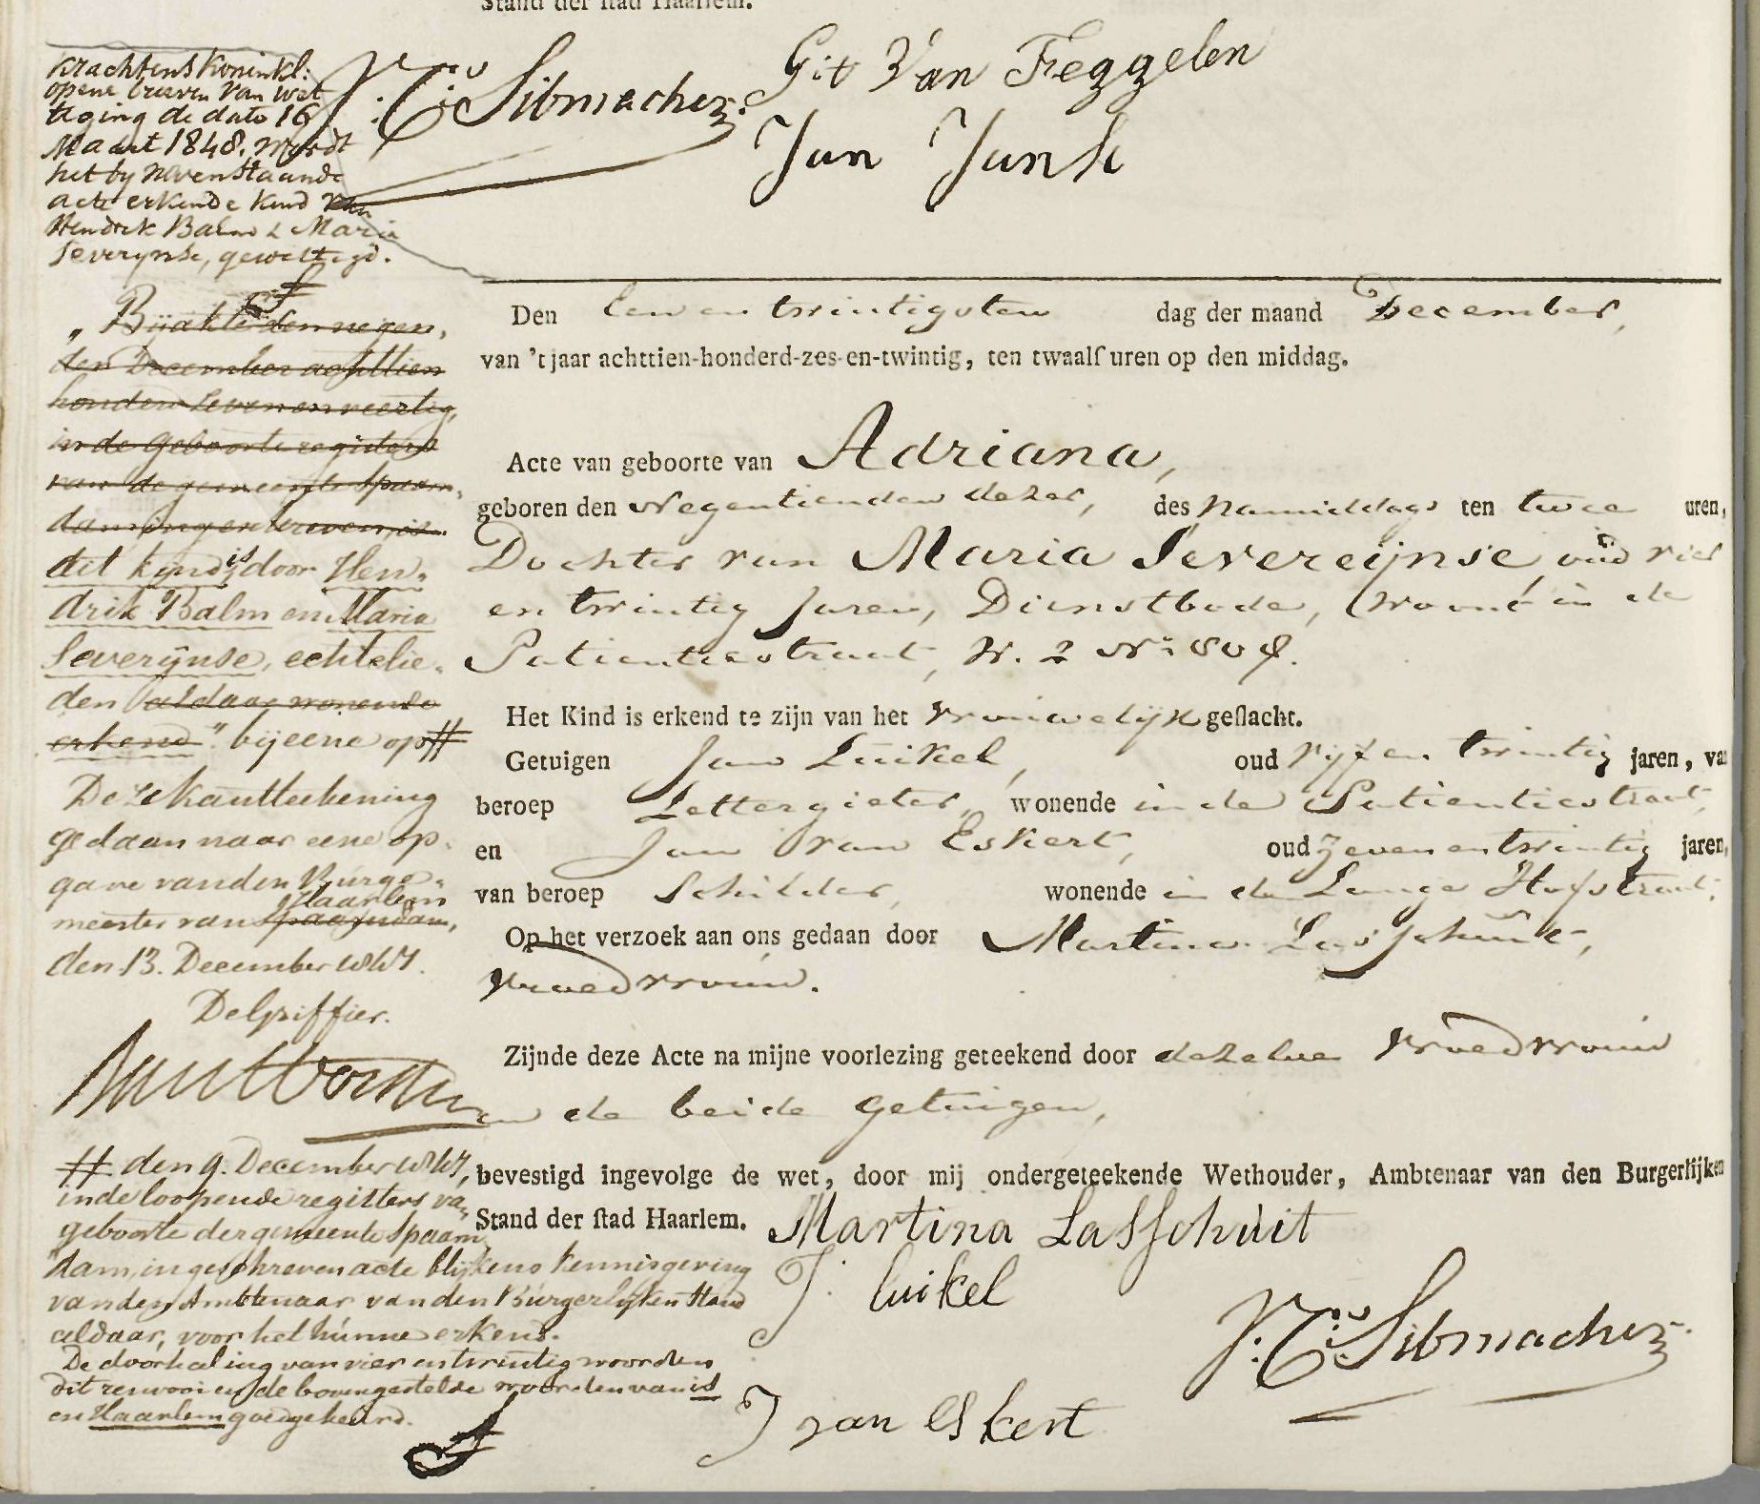 Stand der stad Haarlem.
Git Van Feggelen
J: C: Sibmacher
Jan Junk
Krachtens Koninkl:
opene brieven van wet
tiging de dato 16
Maart 1848. wordt
het by nevenstaande
acte erkende kind van
Hendrik Balm & Maria
Severynse, gewettigd.
„ Bij akte den negen,
den December achttien
honderd zeven en veertig,
in de geboorte registers
van de gemeente Spaarn„
dam ingeschreven, is
dit kynd is door Hen„
drik Balm en Maria
Severijnse, echtelie„
den aldaar wonende
erkend." bij eene op #
Deze kantteekening
gedaan naar eene op„
gave van den Burge„
Haarlem
meester van Spaarndam,
den 13. December 1847.
De Griffier.
# den 9. December 1847,
in de loopende registers van
geboorte der gemeente Spaarn„
dam, ingeschreven acte blijkens kennisgeving
van den Ambtenaar van den Burgerlijken Stand
aldaar, voor het hunne erkend.
De doorhaling van vier en twintig woorden
dit renvooi en de bovengestelde woorden van is
en Haarlem goedgekeurd.
Den een en twintigsten dag der maand December,
van 't jaar achttien-honderd-zes-en-twintig, ten twaalf uren op den middag.
Acte van geboorte van Adriana,
geboren den negentienden dezer, des namiddags ten twee uren,
Dochter van Maria Severeijnse, oud vier
en twintig Jaren, Dienstbode, woont in de
Patientiestraat, W. 2 No 808.
Het Kind is erkend te zijn van het vrouwelijk geslacht.
Getuigen Jan Luikel, oud vijf en twintig jaren, van
beroep Lettergieter, wonende in de Patientiestraat,
en Jan van Eskert, oud zeven en twintig jaren,
van beroep Schilder, wonende in de Lange Hofstraat,
Op het verzoek aan ons gedaan door Martina Lasschuit,
vroedvrouw.
Zijnde deze Acte na mijne voorlezing geteekend door dezelve vroedvrouw
en de beide getuigen,
bevestigd ingevolge de wet, door mij ondergeteekende Wethouder, Ambtenaar van den Burgerlijken
Stand der stad Haarlem.
Martina Lasschuit
J. luikel
J: C: Sibmacher
J van Eskert